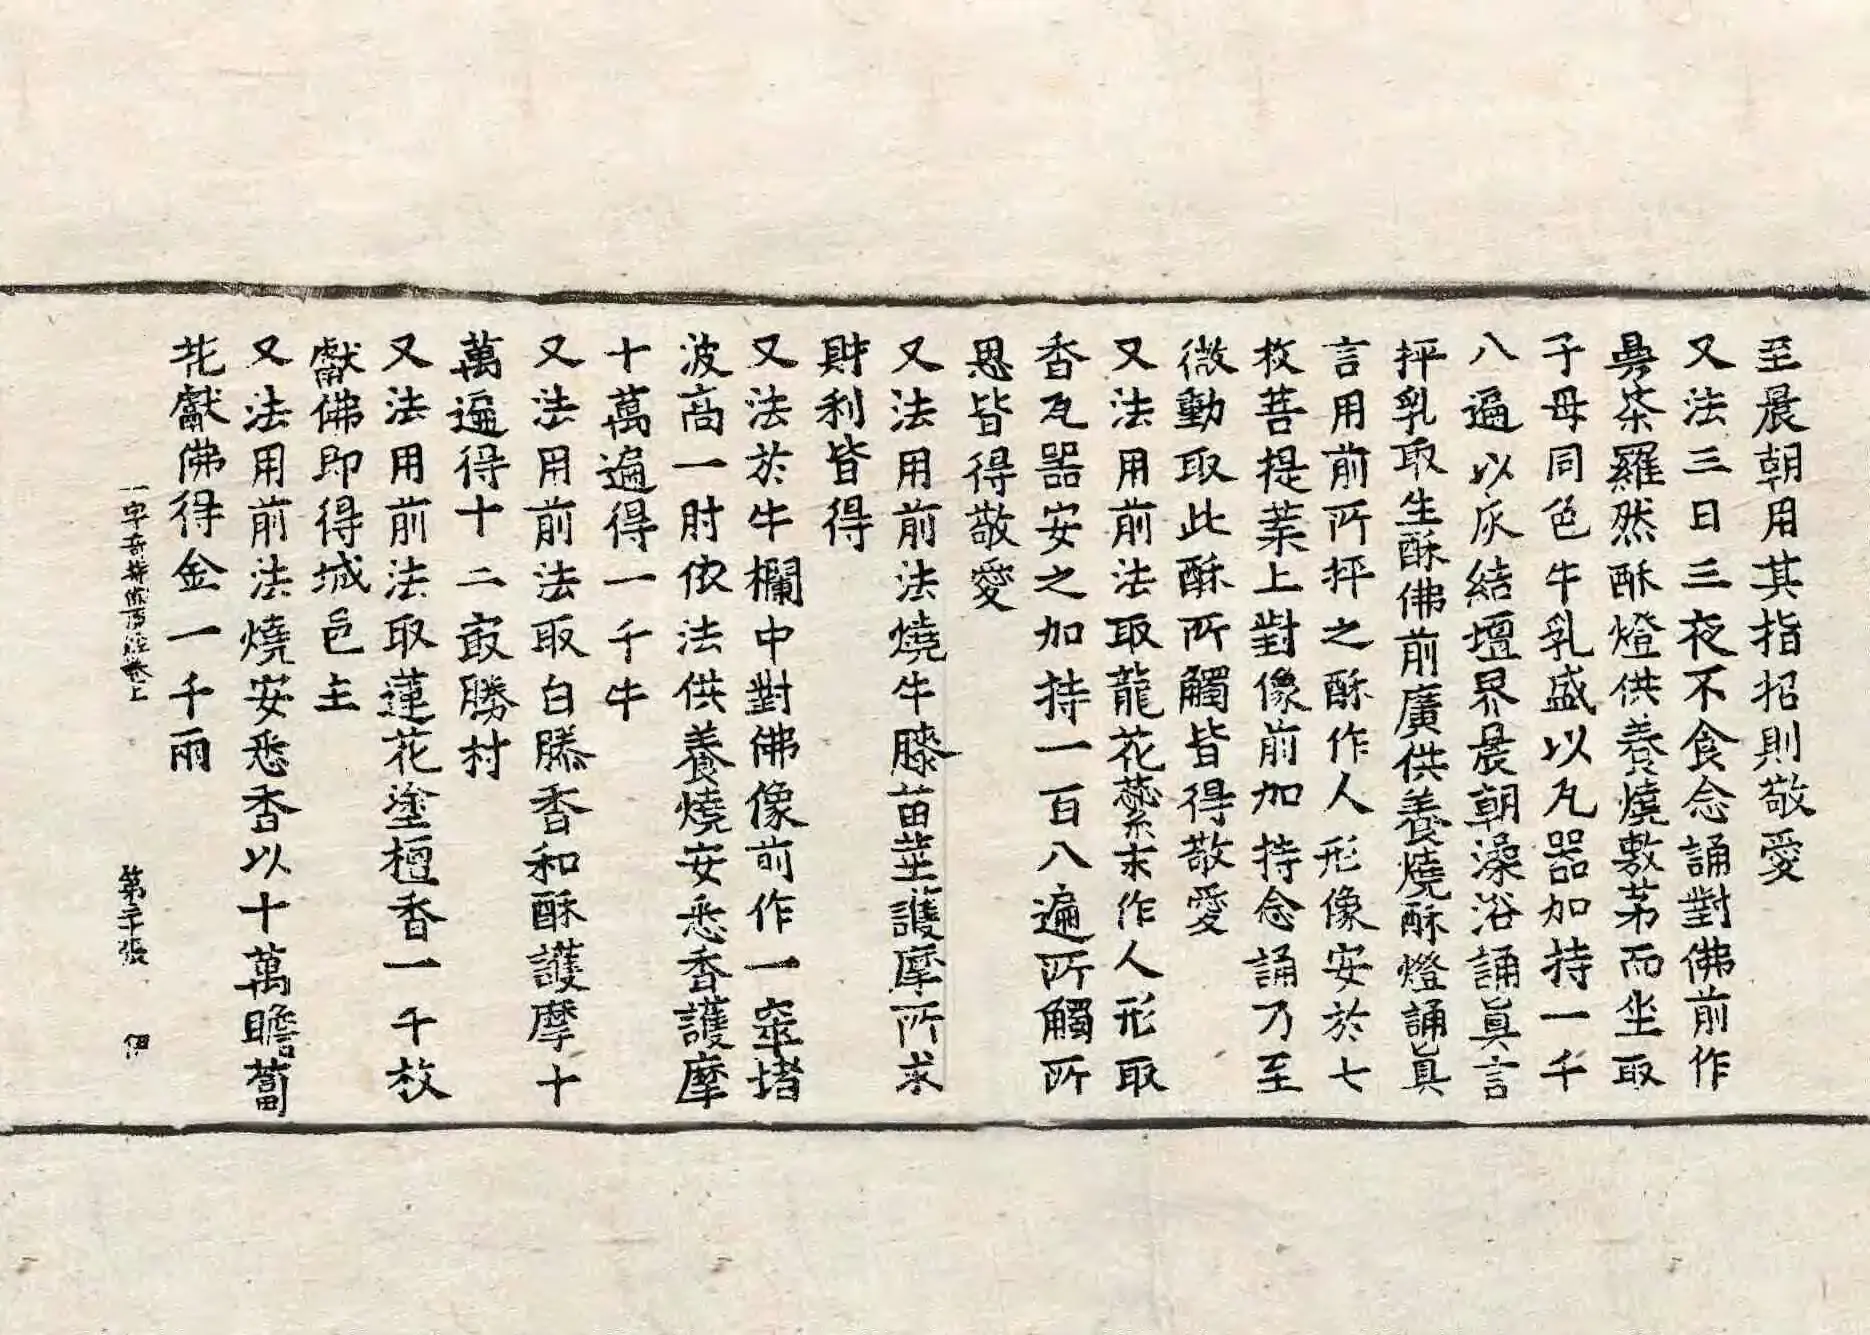 至晨朝用其指招則敬愛
又法三日三夜不食念誦對佛前作
曼荼羅然酥燈供養燒敷茅而坐取
子母同色牛乳盛以瓦器加持一千
八遍以灰結壇界晨朝澡浴誦眞言
抨乳取生酥佛前廣供養燒酥燈誦眞
言用前所抨之酥作人形像安於七
枚菩提葉上對像前加持念誦乃至
微動取此酥所觸皆得敬愛
又法用前法取龍花蘂末作人形取
香瓦器安之加持一百八遍所觸所
思皆得敬愛
又法用前法燒牛膝苗莖護摩所求
財利皆得
又法於牛欄中對佛像前作一窣堵
波高一肘依法供養燒安悉香護摩
十萬遍得一千牛
又法用前法取白膠香和酥護摩十
萬遍得十二㝡勝村
又法用前法取蓮花塗檀香一千枚
獻佛即得城邑主
又法用前法燒安悉香以十萬瞻蔔
花獻佛得金一千兩
一字奇特佛頂經卷上 第二十張 伊